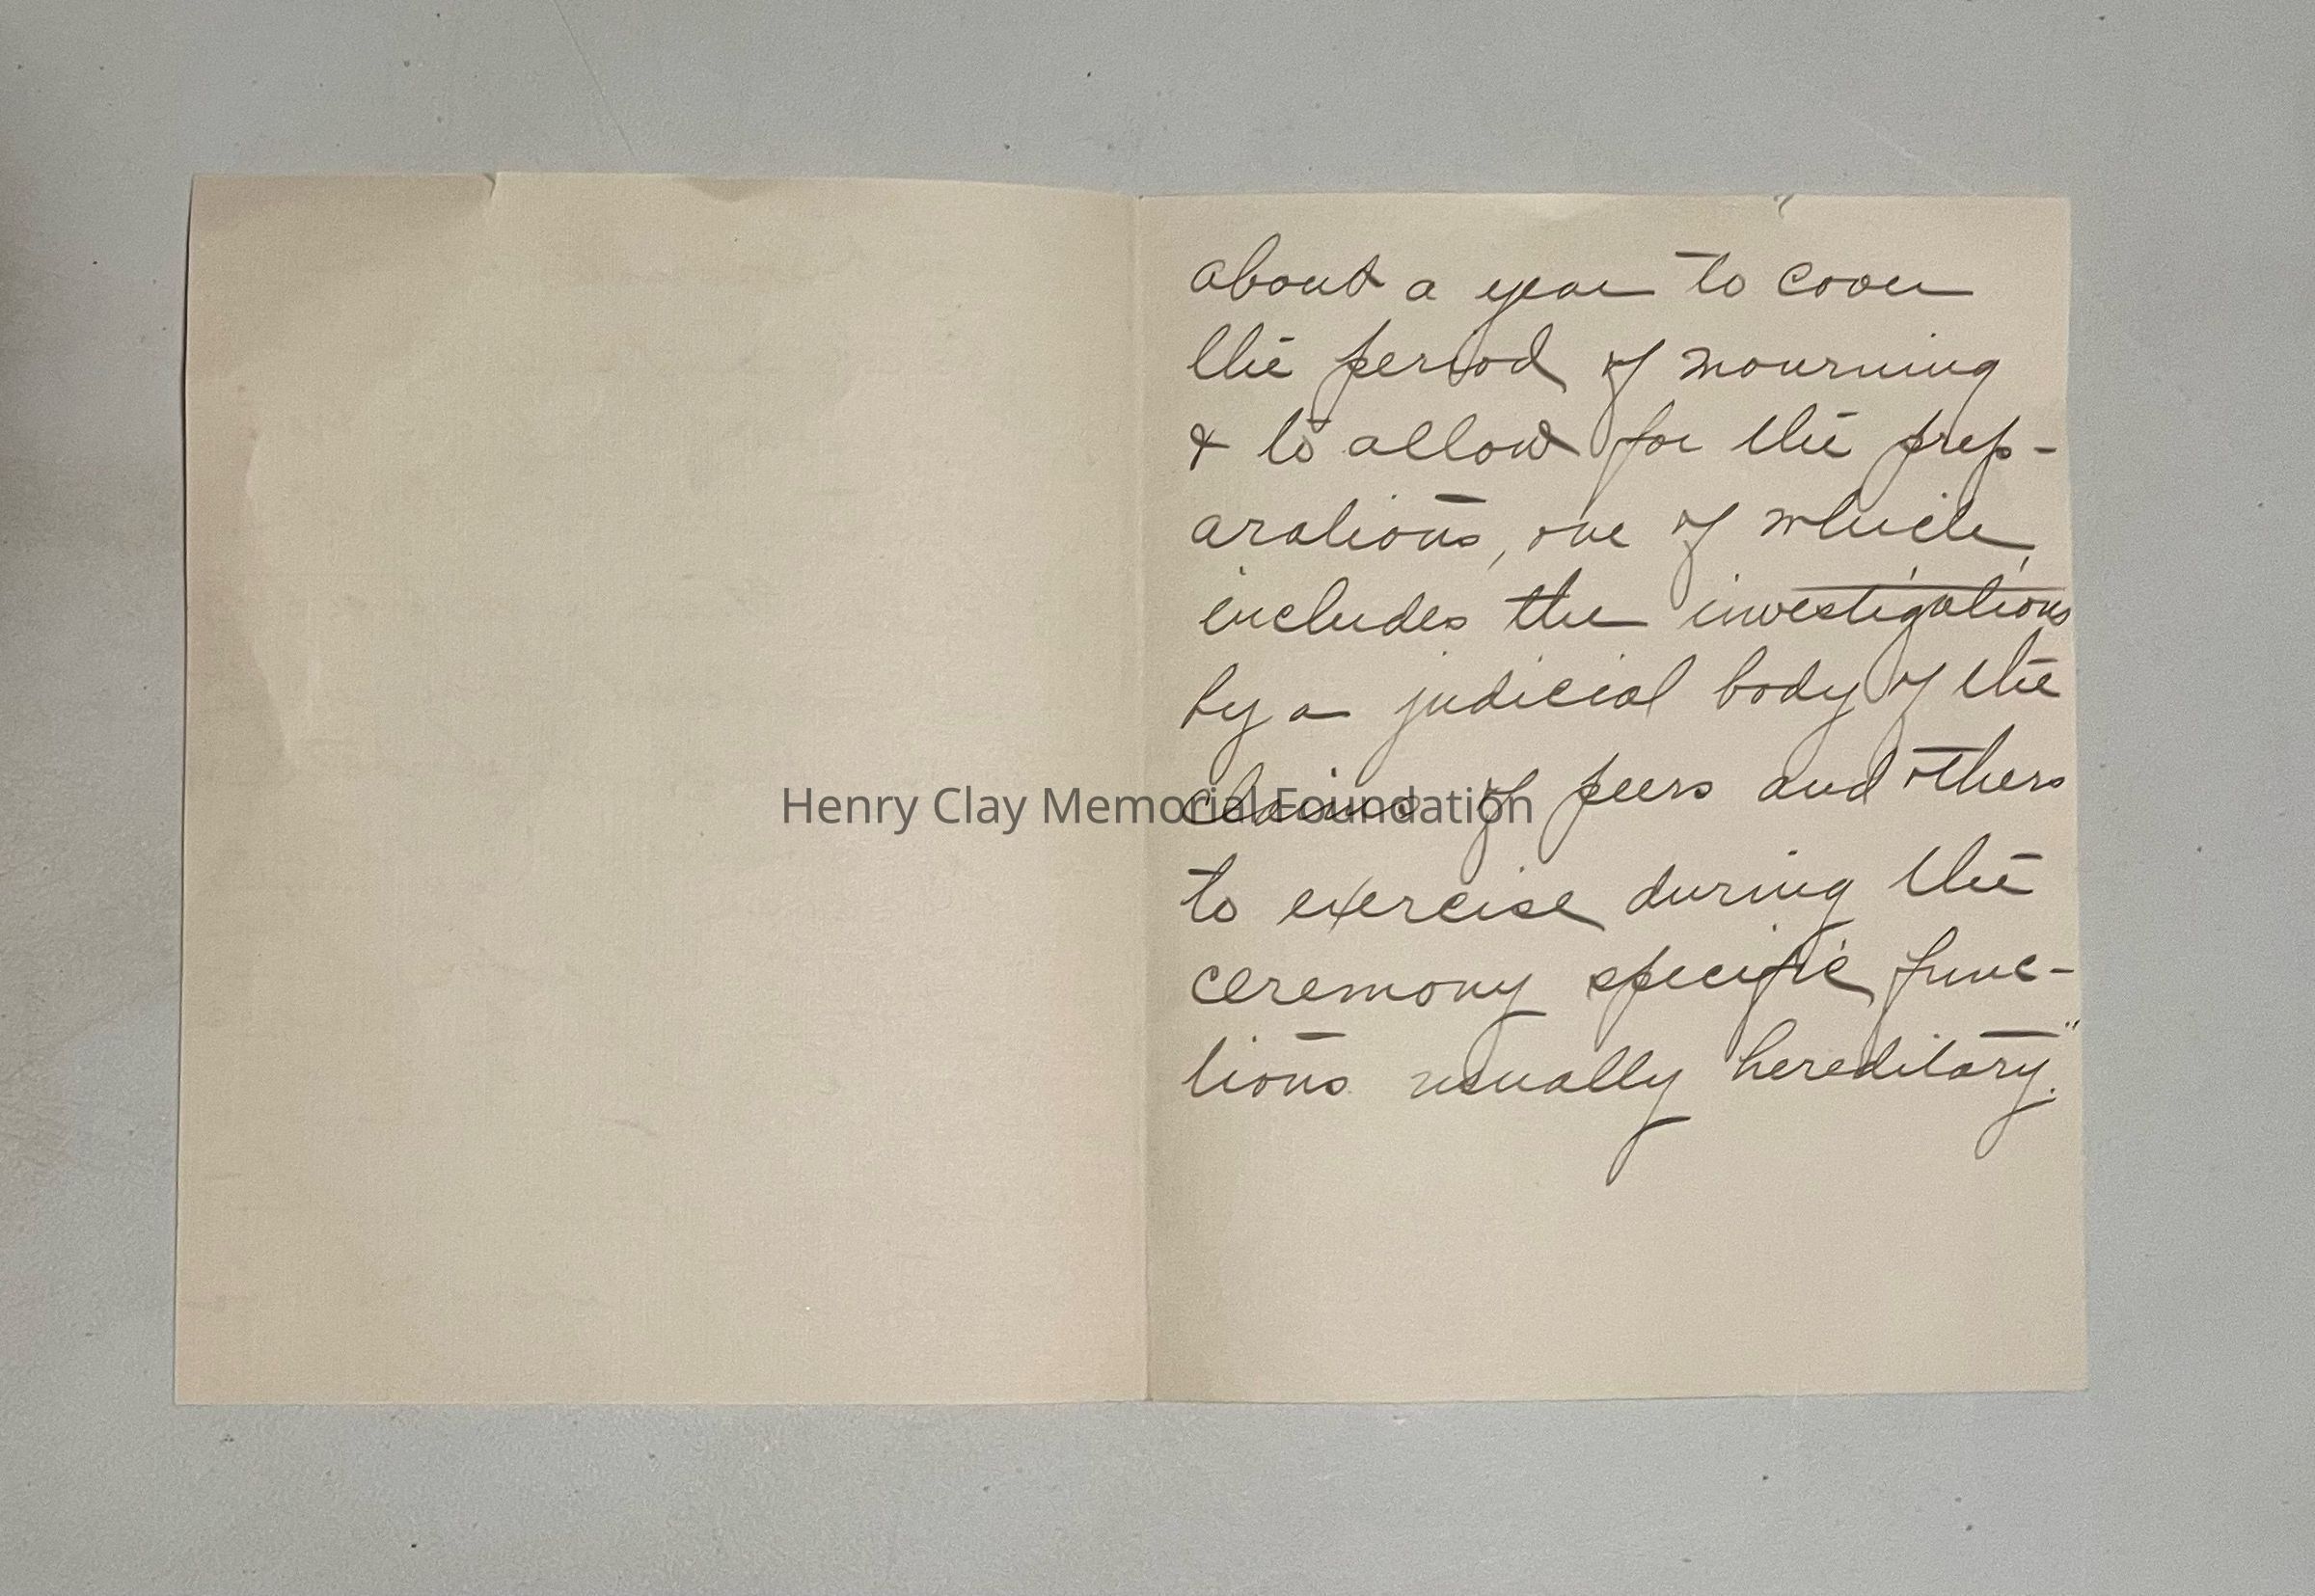 about a year to cover
the period of mourning
& to allow for the prep-
arations, one of which
includes the investigations
by a judicial body of the
claims of peers and others
to exercise during the
ceremony specific func-
tions usually hereditary."
Henry Clay Memorial Foundation